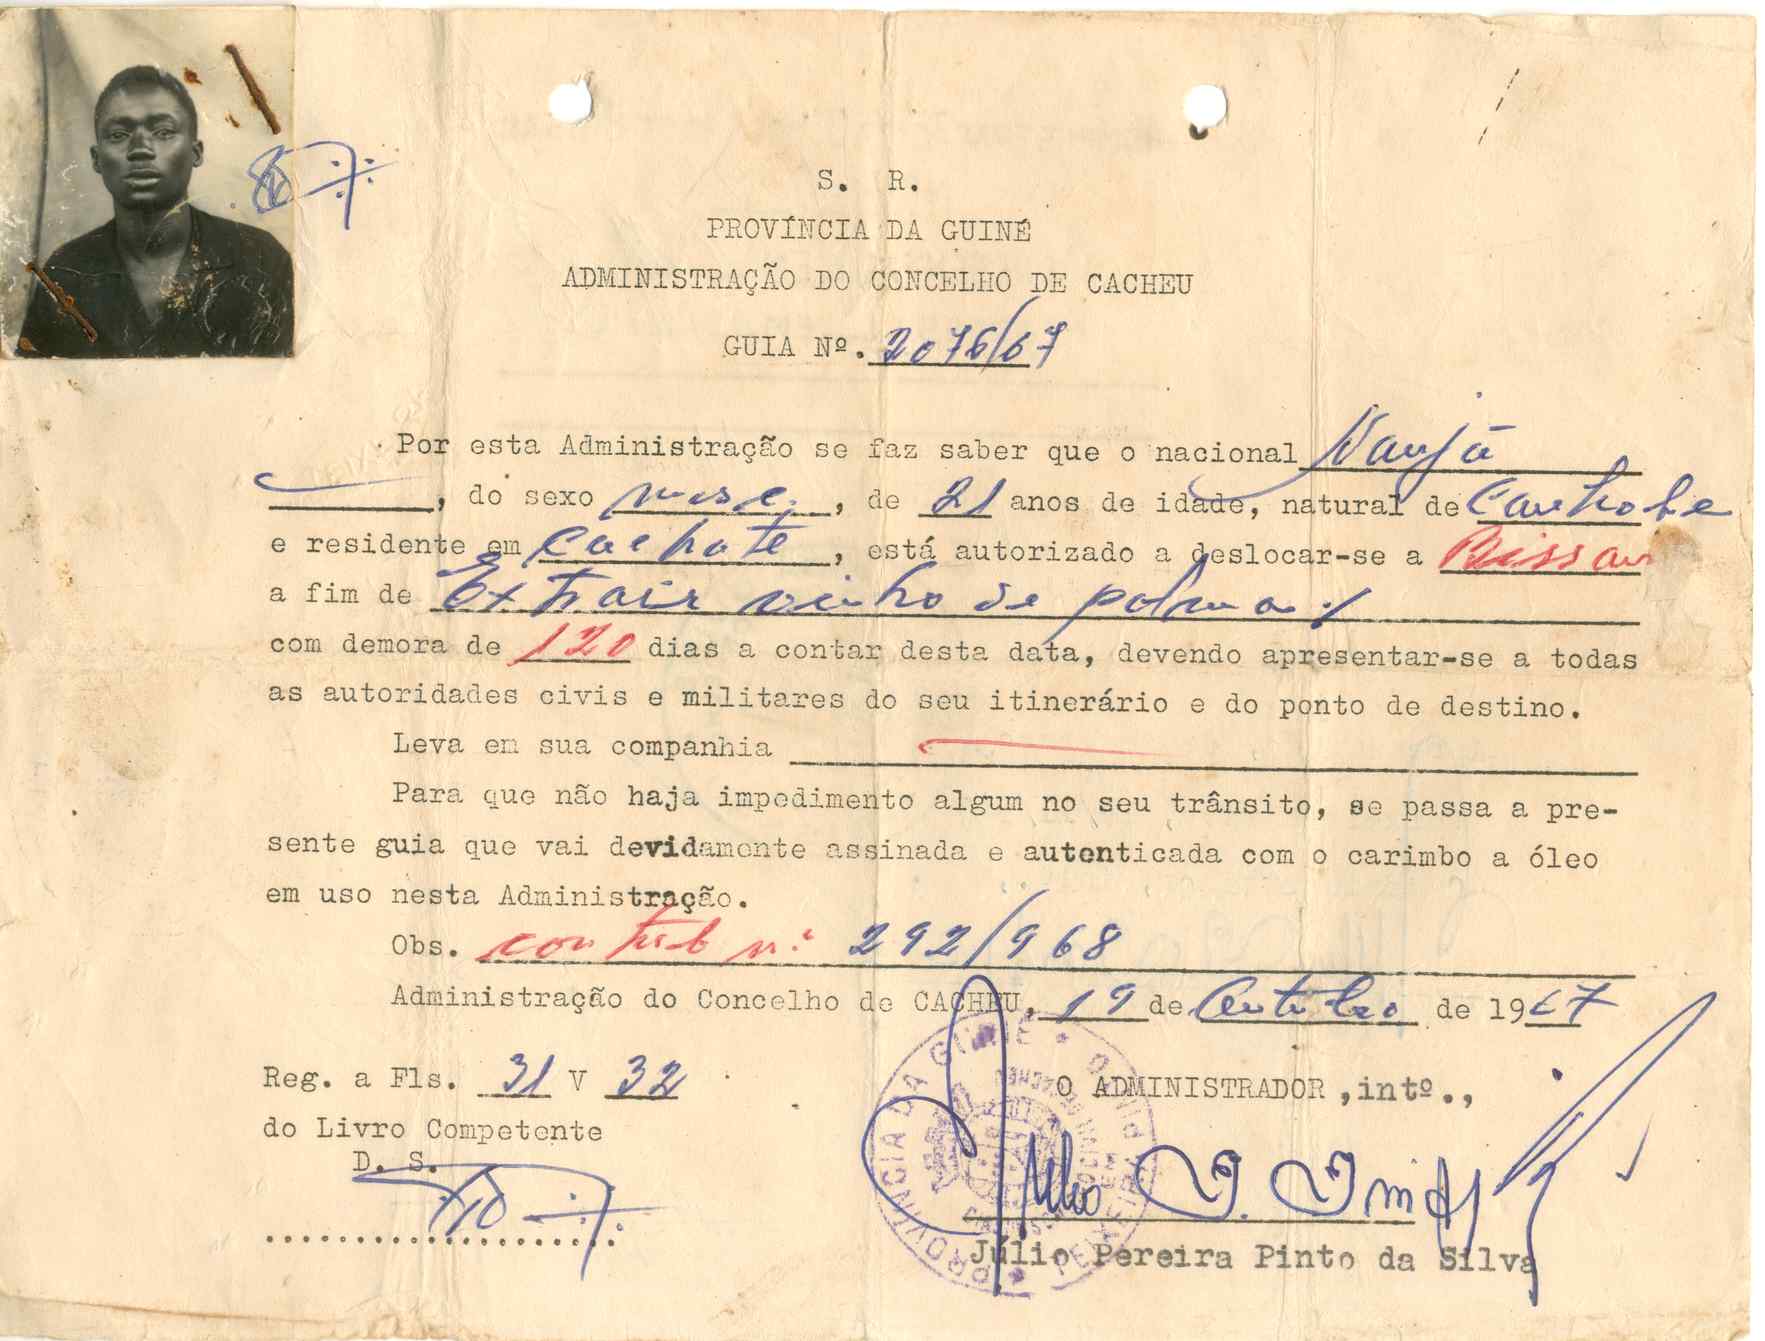 S. R.
PROVÍNCIA DA GUINÉ
ADMINISTRAÇÃO DO CONCELHO DE CACHEU
GUIA Nº. 2076/67
Por esta Administração se faz saber que o nacional Naujá
, do sexo masc. , de 21 anos de idade, natural de Canhobe
e residente em Cachate , está autorizado a deslocar-se a Bissau
a fim de Extrair vinho de palma
com demora de 120 dias a contar desta data, devendo apresentar-se a todas
as autoridades civis e militares do seu itinerário e do ponto de destino.
Leva em sua companhia
Para que não haja impedimento algum no seu trânsito, se passa a pre-
sente guia que vai devidamente assinada e autenticada com o carimbo a óleo
em uso nesta Administração.
Obs. contrib nº 292/968
Administração do Concelho de CACHEU, 19 de Outubro de 1967
Reg. a Fls. 31 V 32
O ADMINISTRADOR ,intº.,
do Livro Competente
D. S.
PROVÍNCIA DA GUINÉ
Júlio Pereira Pinto da Silva